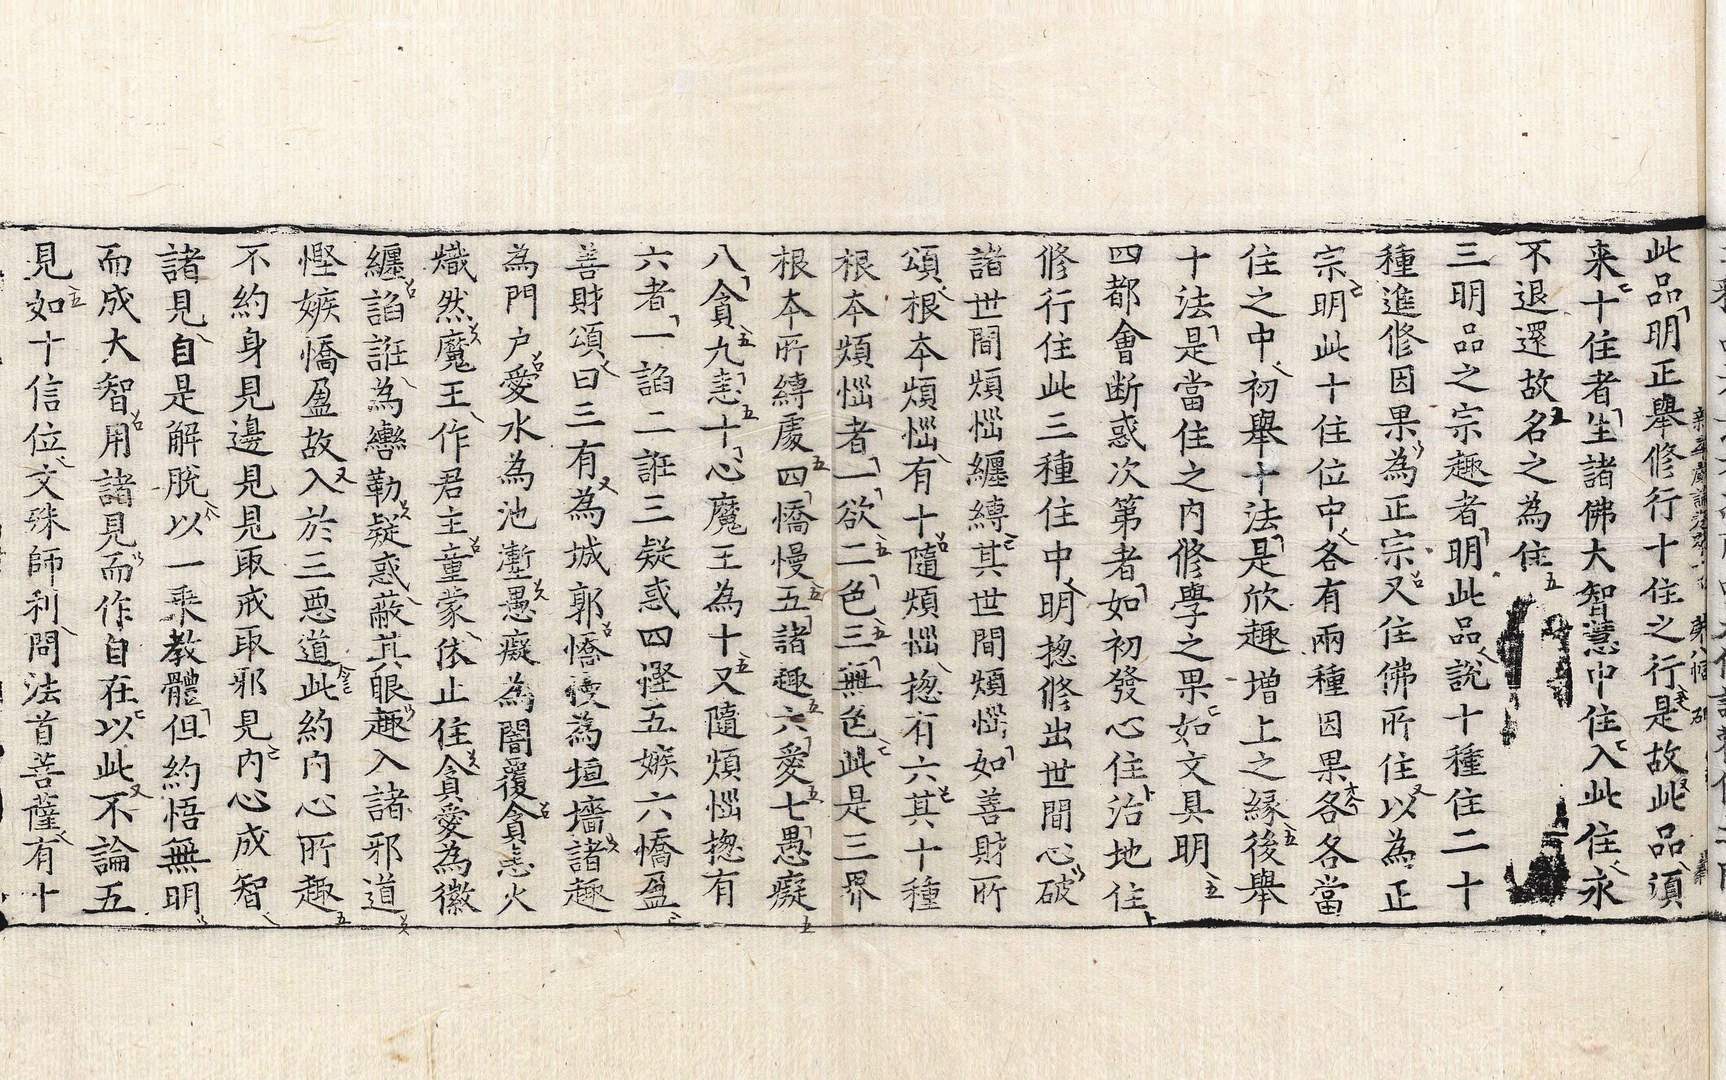 此品明正舉修行十住之行是故此品湏
来十住者生諸佛大智慧中住入此住永
不退還故名之為住
三明品之宗趣者明此品說十種住二十
種進修因果為正宗又住佛所住以為正
宗明此十住位中各有兩種因果各各當
住之中初舉十法是欣趣增上之緣後舉
十法是當住之内修學之果如文具明
四都會断惑次第者如初發心住治地住
修行住此三種住中明揔修出世間心破
諸世間煩惱纏縛其世間煩惱如善財所
頌根夲煩惱有十隨煩惱揔有六其十種
根夲煩惱者一欲二色三無色此是三界
根夲所縛處四憍慢五諸趣六愛七愚癡
八貪九恚十心魔王為十又隨煩惱揔有
六者一諂二誑三疑惑四慳五嫉六憍盈
善財頌曰三有為城郭憍慢為垣墻諸趣
為門户愛水為池壍愚癡為闇覆貪恚火
熾然魔王作君主童蒙依止住貪愛為徽
纏諂誑為轡勒疑惑蔽其眼趣入諸邪道
慳嫉憍盈故入於三惡道此約内心所趣
不約身見邊見見取戒取邪見内心成智
諸見自是解脫以一乘教體但約悟無明
而成大智用諸見而作自在以此不論五
見如十信位文殊師利問法首菩薩有十